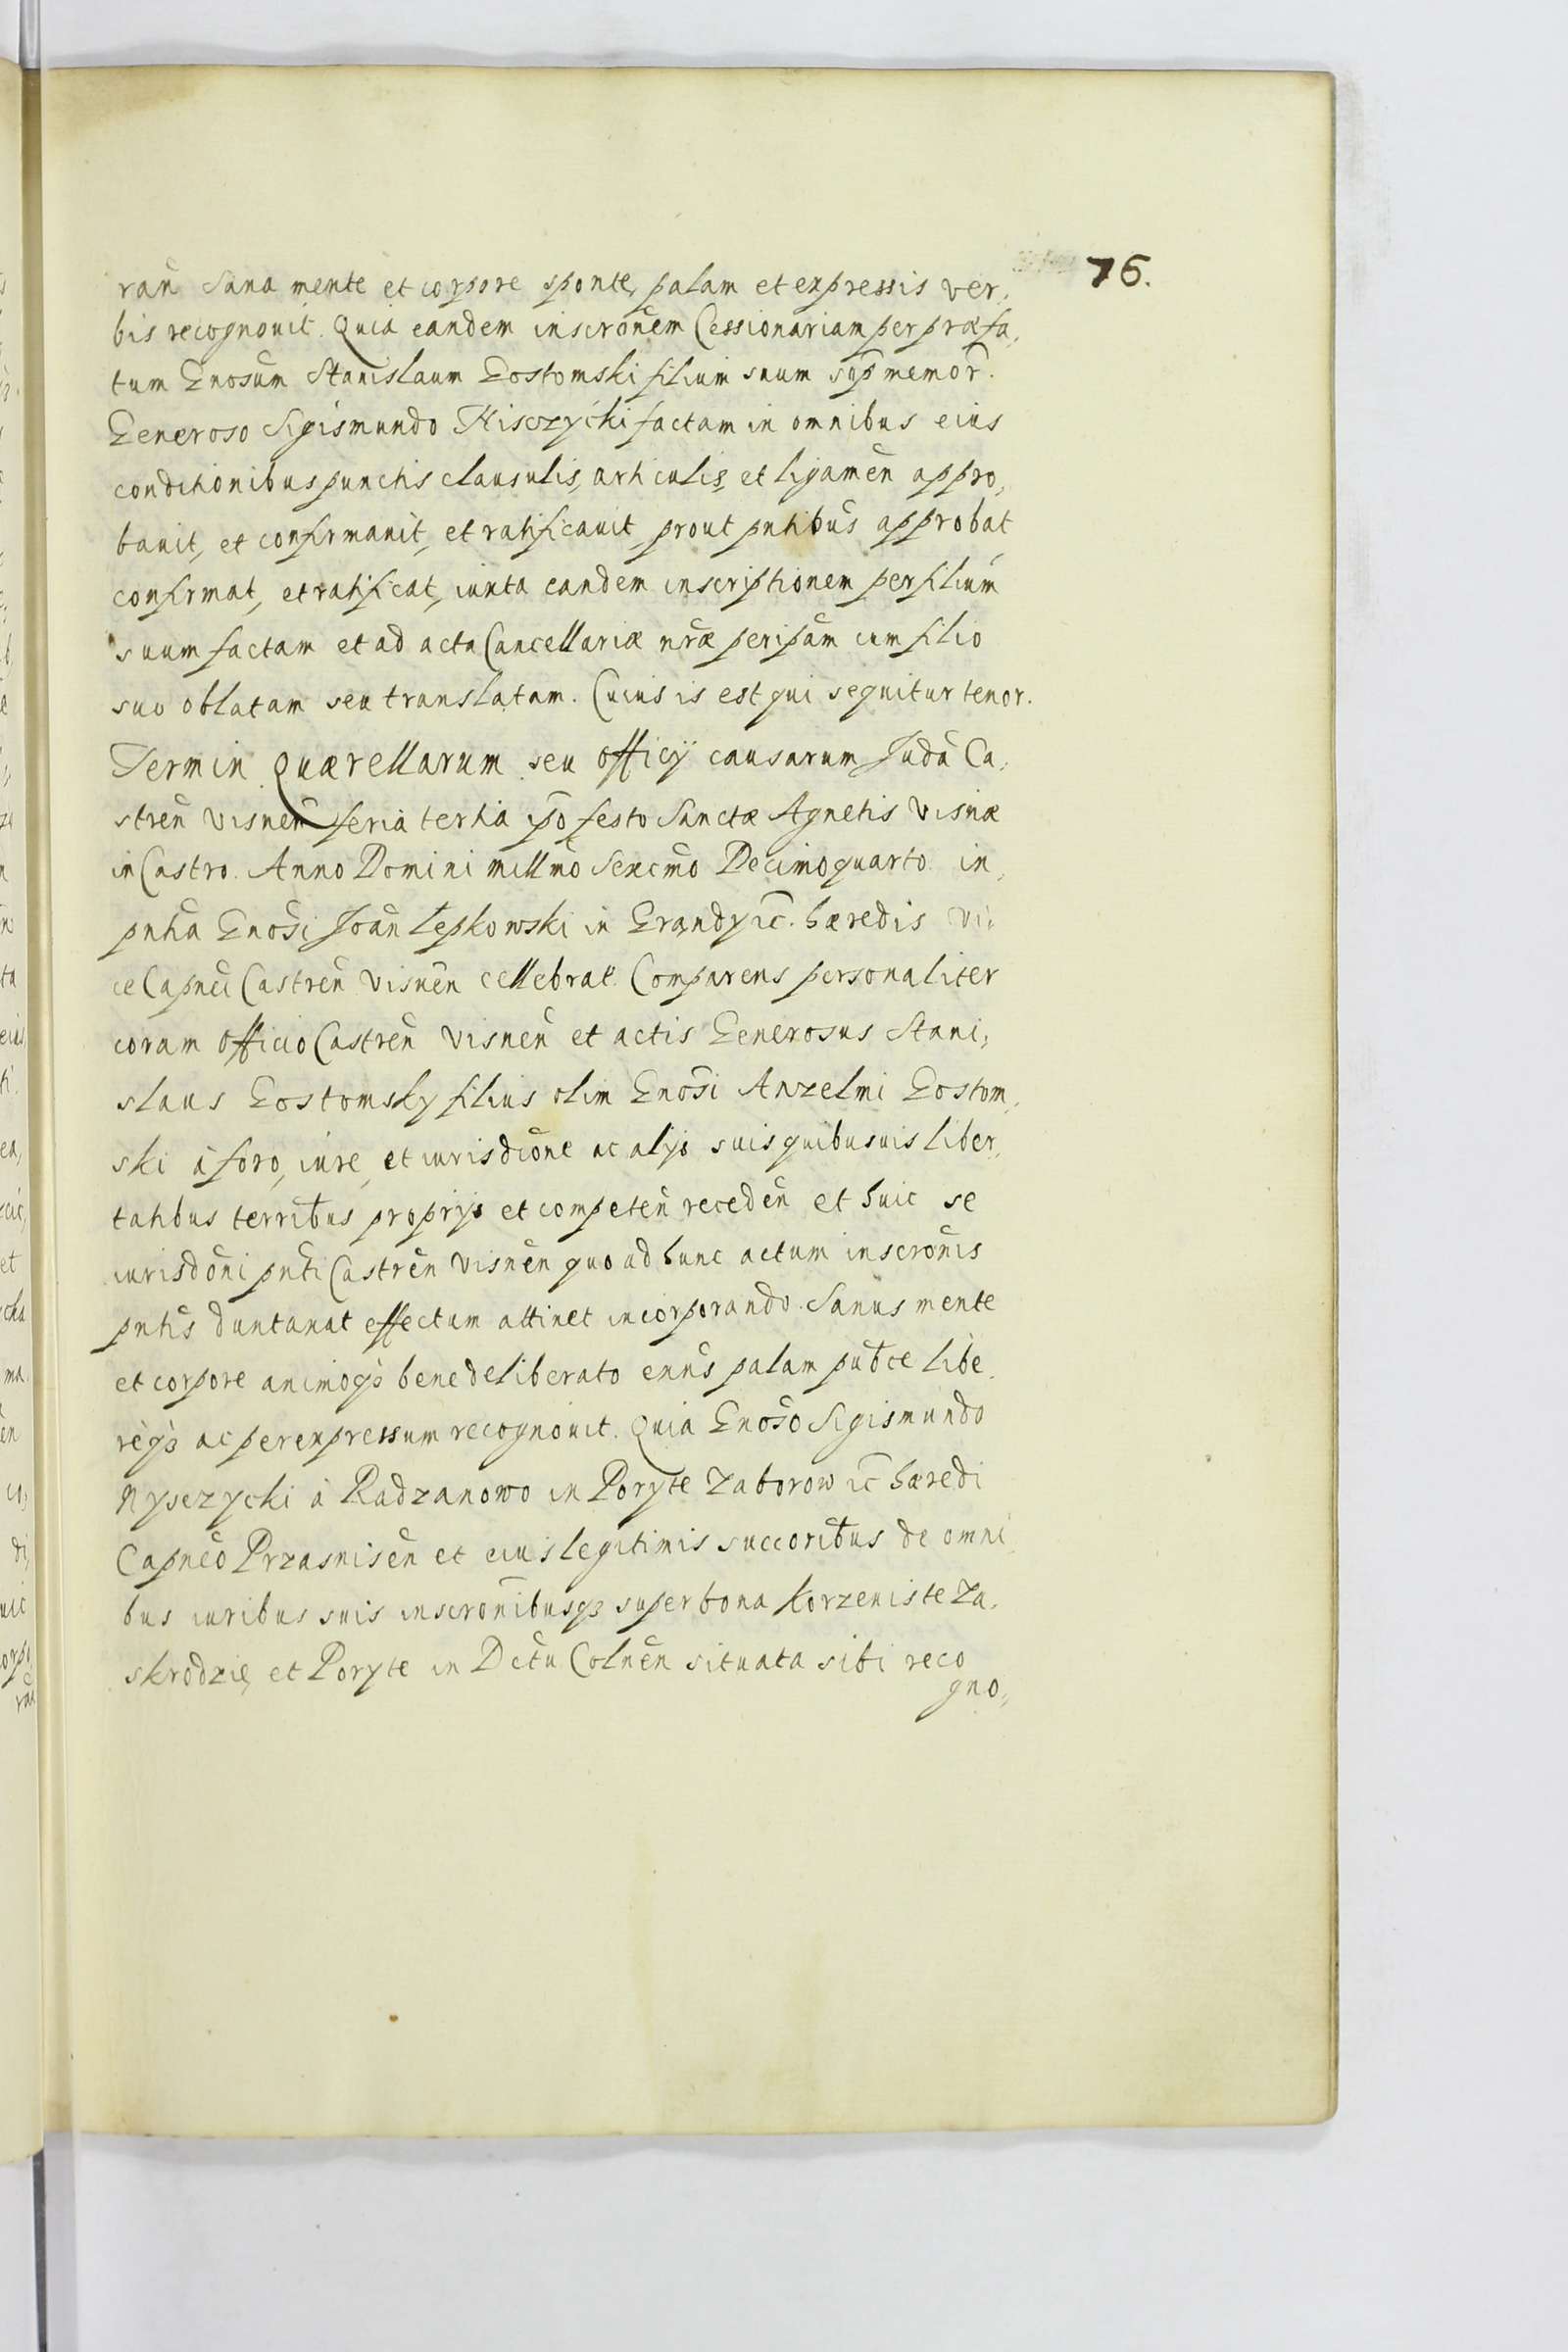 76.
ran̄ sana mente et corpore sponte, palam et expressis ver,
bis recognouit. Quia eandem inscron̄em Cessionariam per præfa,
tum Gnosum̄ Stanislaum Gostomski filium suum sup̄ memor̄.
Generoso Sigismundo Nisczycki factam in omnibus eius
conditionibus punctis clausulis, articulis, et ligamen̄ appro,
bauit, et confirmauit, et ratificauit, prout pntibus̄ approbat
confirmat, et ratificat, iuxta eandem inscriptionem per filium
suum factam et ad acta Cancellariæ nr̄æ per ipsam̄ cum filio
suo oblatam seu translatam. Cuius is est qui sequitur tenor.
Termin̄ Quærellarum seu officij causarum Jud̄ Ca,
stren̄ Visnen̄ feria tertia ip̄o festo Sanctæ Agnetis Visnæ
in Castro. Anno Domini millm̄o Sexcm̄o Decimoquarto. in,
pntia Gnosi̅ Joan̄ Łepkowski in Grandy ic̄. hæredis Vi,
ce Capnei̅ Castren̄ Visnen̄ cellebrat̄. Comparens personaliter
coram officio Castren̄ Visnen̄ et actis Generosus Stani,
slaus Gostomsky filius olim Gnosi̅ Anzelmi Gostom,
ski à foro, iure, et iurisdicōne ac alijs suis quibusuis liber,
tatibus terrib̄us proprijs et competen̄ receden̄ et huic se
iurisdōni pnti̅ Castren̄ Visnen̄ quo ad hunc actum inscron̄is
pntis̅ duntaxat effectum attinet incorporando. Sanus mente
et corpore animoqȝ bene deliberato exn̄s palam pub̄ce libe,
reqȝ ac per expressum recognouit. Quia Gnoso̅ Sigismundo
Nysczycki à Radzanowo in Poryte Zaborow ic̄ hæredi
Capneo̅ Przasnisen̄ et eius legitimis succorib̄us de omni
bus iuribus suis inscron̄ibusqȝ super bona Korzeniste Za,
skrodzie, et Poryte in Dc̄tu Colnen̄ situata sibi reco
gno,